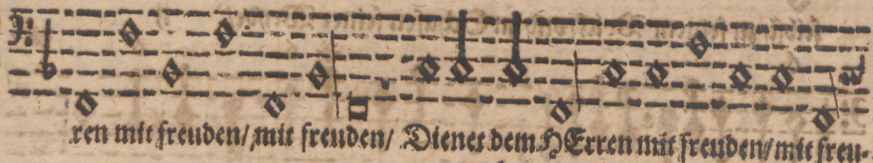 ren mit freuden/ mit freuden/ Dienet dem HErren mit freuden/ mit freu-